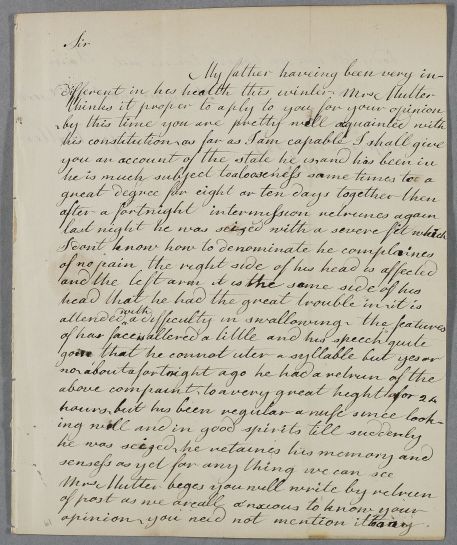 Sir
My father haveing been very in-
different in hes health this winter Mrs Hutter
thinks it proper to aply to you for your opinion
by this time you are pretty well aquainted with
his constitution as far as I am capable I shall give
you an account of the state he is and has been in
he is much subject to a looseness some times to a
great degree for eight or ten days together then
after a fortnight intermission retrunes again
last night he was seized with a severe fit which
I cont know how to denominate he complaines
of no pain the right side of his head is affected
and the left arm it is the same side of his
head that he had the great trouble in it is
attended with a difficulty in swallowing the features
of has face is altered a little and his speech quite
gone that he connot uter a syllable but yes or
no about a fortnight ago he had a retrun of the
above compaint to a very great heght for 24
hours but has been regular a nuff since look-
ing well and in good spirits till suddenly
he was seized he retaines his memory and
senses as yet for any thing we can see
Mrs Hutter beges you will write by retrun
of post as we are all anxious to know your
opinion you need not mention it to any